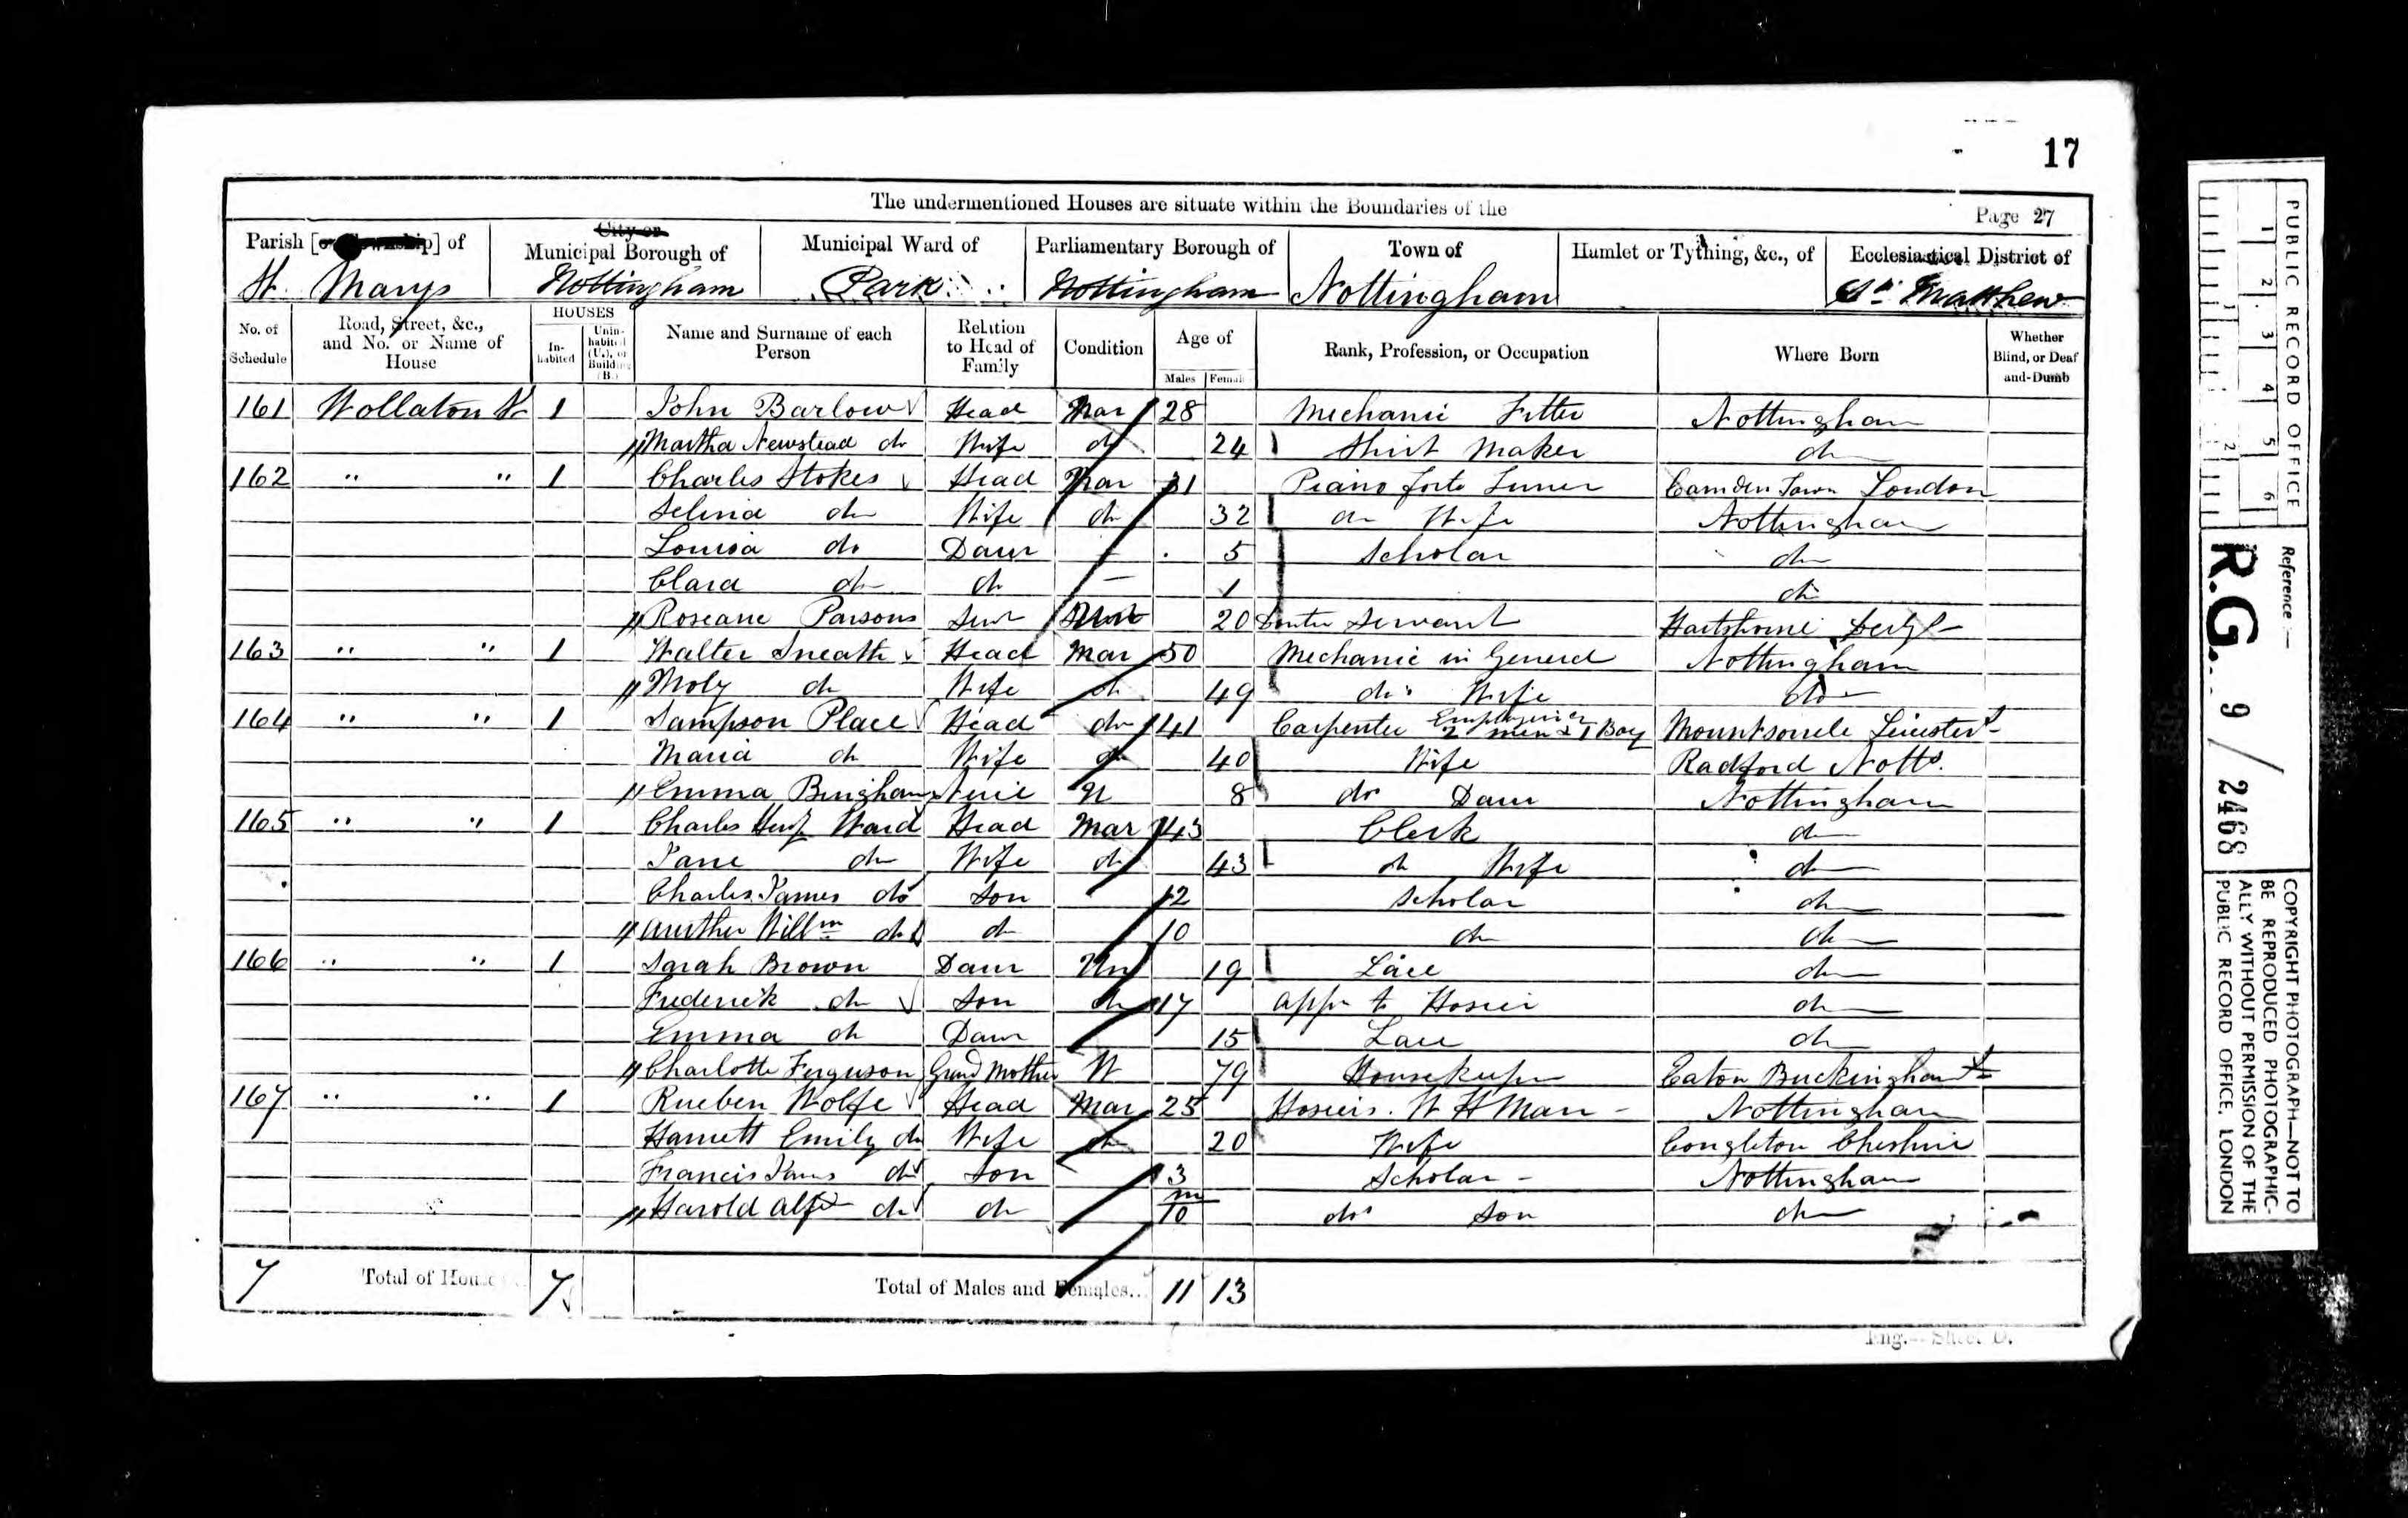 17
The undermentioned Houses are situate within the Boundaries of the
Page 27
Parish [or Township] of
City or Municipal Borough of
Municipal Ward of
Parliamentary Borough of
Town of
Hamlet or Tything, &c., of
Ecclesiastical District of
St. Marys Nottingham Park Nottingham Nottingham St. Matthew
No. of Schedule
Road, Street, &c., and No. or Name of House
HOUSES
In-habited
Unin-habited (U.), or Building (B.)
Name and Surname of each Person
Relation to Head of Family
Condition
Age of
Males Females
Rank, Profession, or Occupation
Where Born
Whether Blind, or Deaf-and-Dumb
161 Wollaton St 1 John Barlow Head Mar 28 Mechanic Fitter Nottingham
Martha Newstead do Wife do 24 Shirt Maker do
162 " " 1 Charles Stokes Head Mar 31 Piano forte Tuner Camden Town London
Selina do Wife do 32 do Wife Nottingham
Louisa do Daur - 5 Scholar do
Clara do do - 1 do
Roseane Parsons Servt 20 Servant Hartshorne Derbys
163 " " 1 Walter Sneath Head Mar 50 Mechanic in General Nottingham
Moly do Wife do 49 do Wife do
164 " " 1 Sampson Place Head do 41 Carpenter Employing 2 men & 1 Boy Mountsorrele Leicester
Maria do Wife do 40 Wife Radford Notts.
Emma Bingham Niece 8 do Daur Nottingham
165 " " 1 Charles Hen Ward Head Mar 43 Clerk do
Jane do Wife do 43 do Wife do
Charles James do Son 12 Scholar do
Aurther Willm do do 10 do do
166 " " 1 Sarah Brown Daur Un 19 Lace do
Frederick do Son do 17 appr to Hosier do
Emma do Daur 15 Lace do
Charlotte Ferguson Grand Mother W 79 Housekeeper Eaton Buckingham
167 " " 1 Rueben Wolfe Head Mar 25 Hosiers. W H Man - Nottingham
Harriett Emily do Wife do 20 Wife Congleton Cheshire
Francis James do Son 3 Scholar - Nottingham
Harold Alfd do do m 10 do Son do
7 Total of Houses 7 Total of Males and Females... 11 13
Eng.—Sheet D.
PUBLIC RECORD OFFICE
1 2 3 4 5 6
1 2
Reference :—
R.G. 9 / 2468
COPYRIGHT PHOTOGRAPH—NOT TO
BE REPRODUCED PHOTOGRAPHIC-
ALLY WITHOUT PERMISSION OF THE
PUBLIC RECORD OFFICE, LONDON